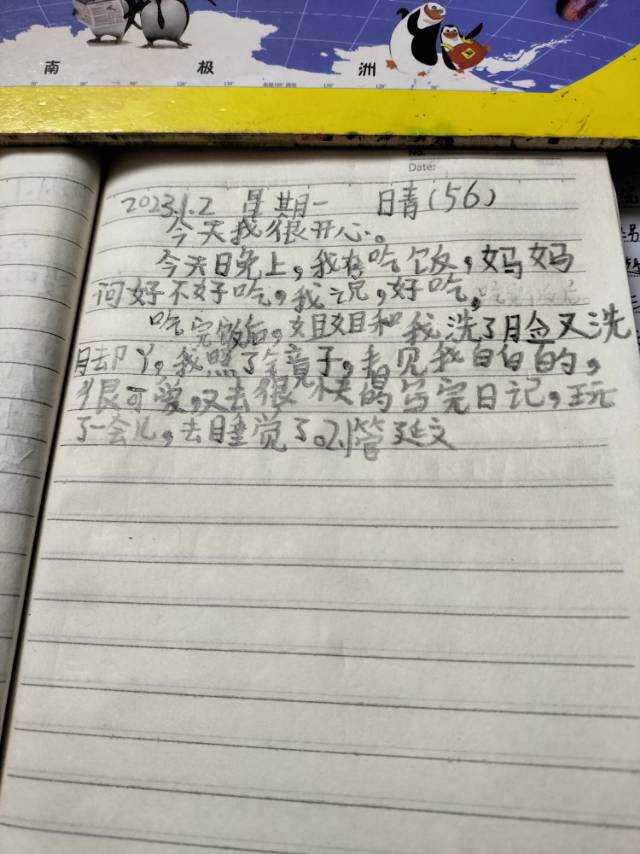 南 极 洲
Date:
2023.1.2 星期一 日晴(56)
今天我很开心。
今天日免上,我在吃饭,妈妈
问好不好吃,我说,好吃,
吃完饭后,姐姐和我洗了脸又洗
脚丫,我照了镜子,看见我白白的,
很可爱,又去很快的写完日记,玩
了一会儿,去睡觉了。